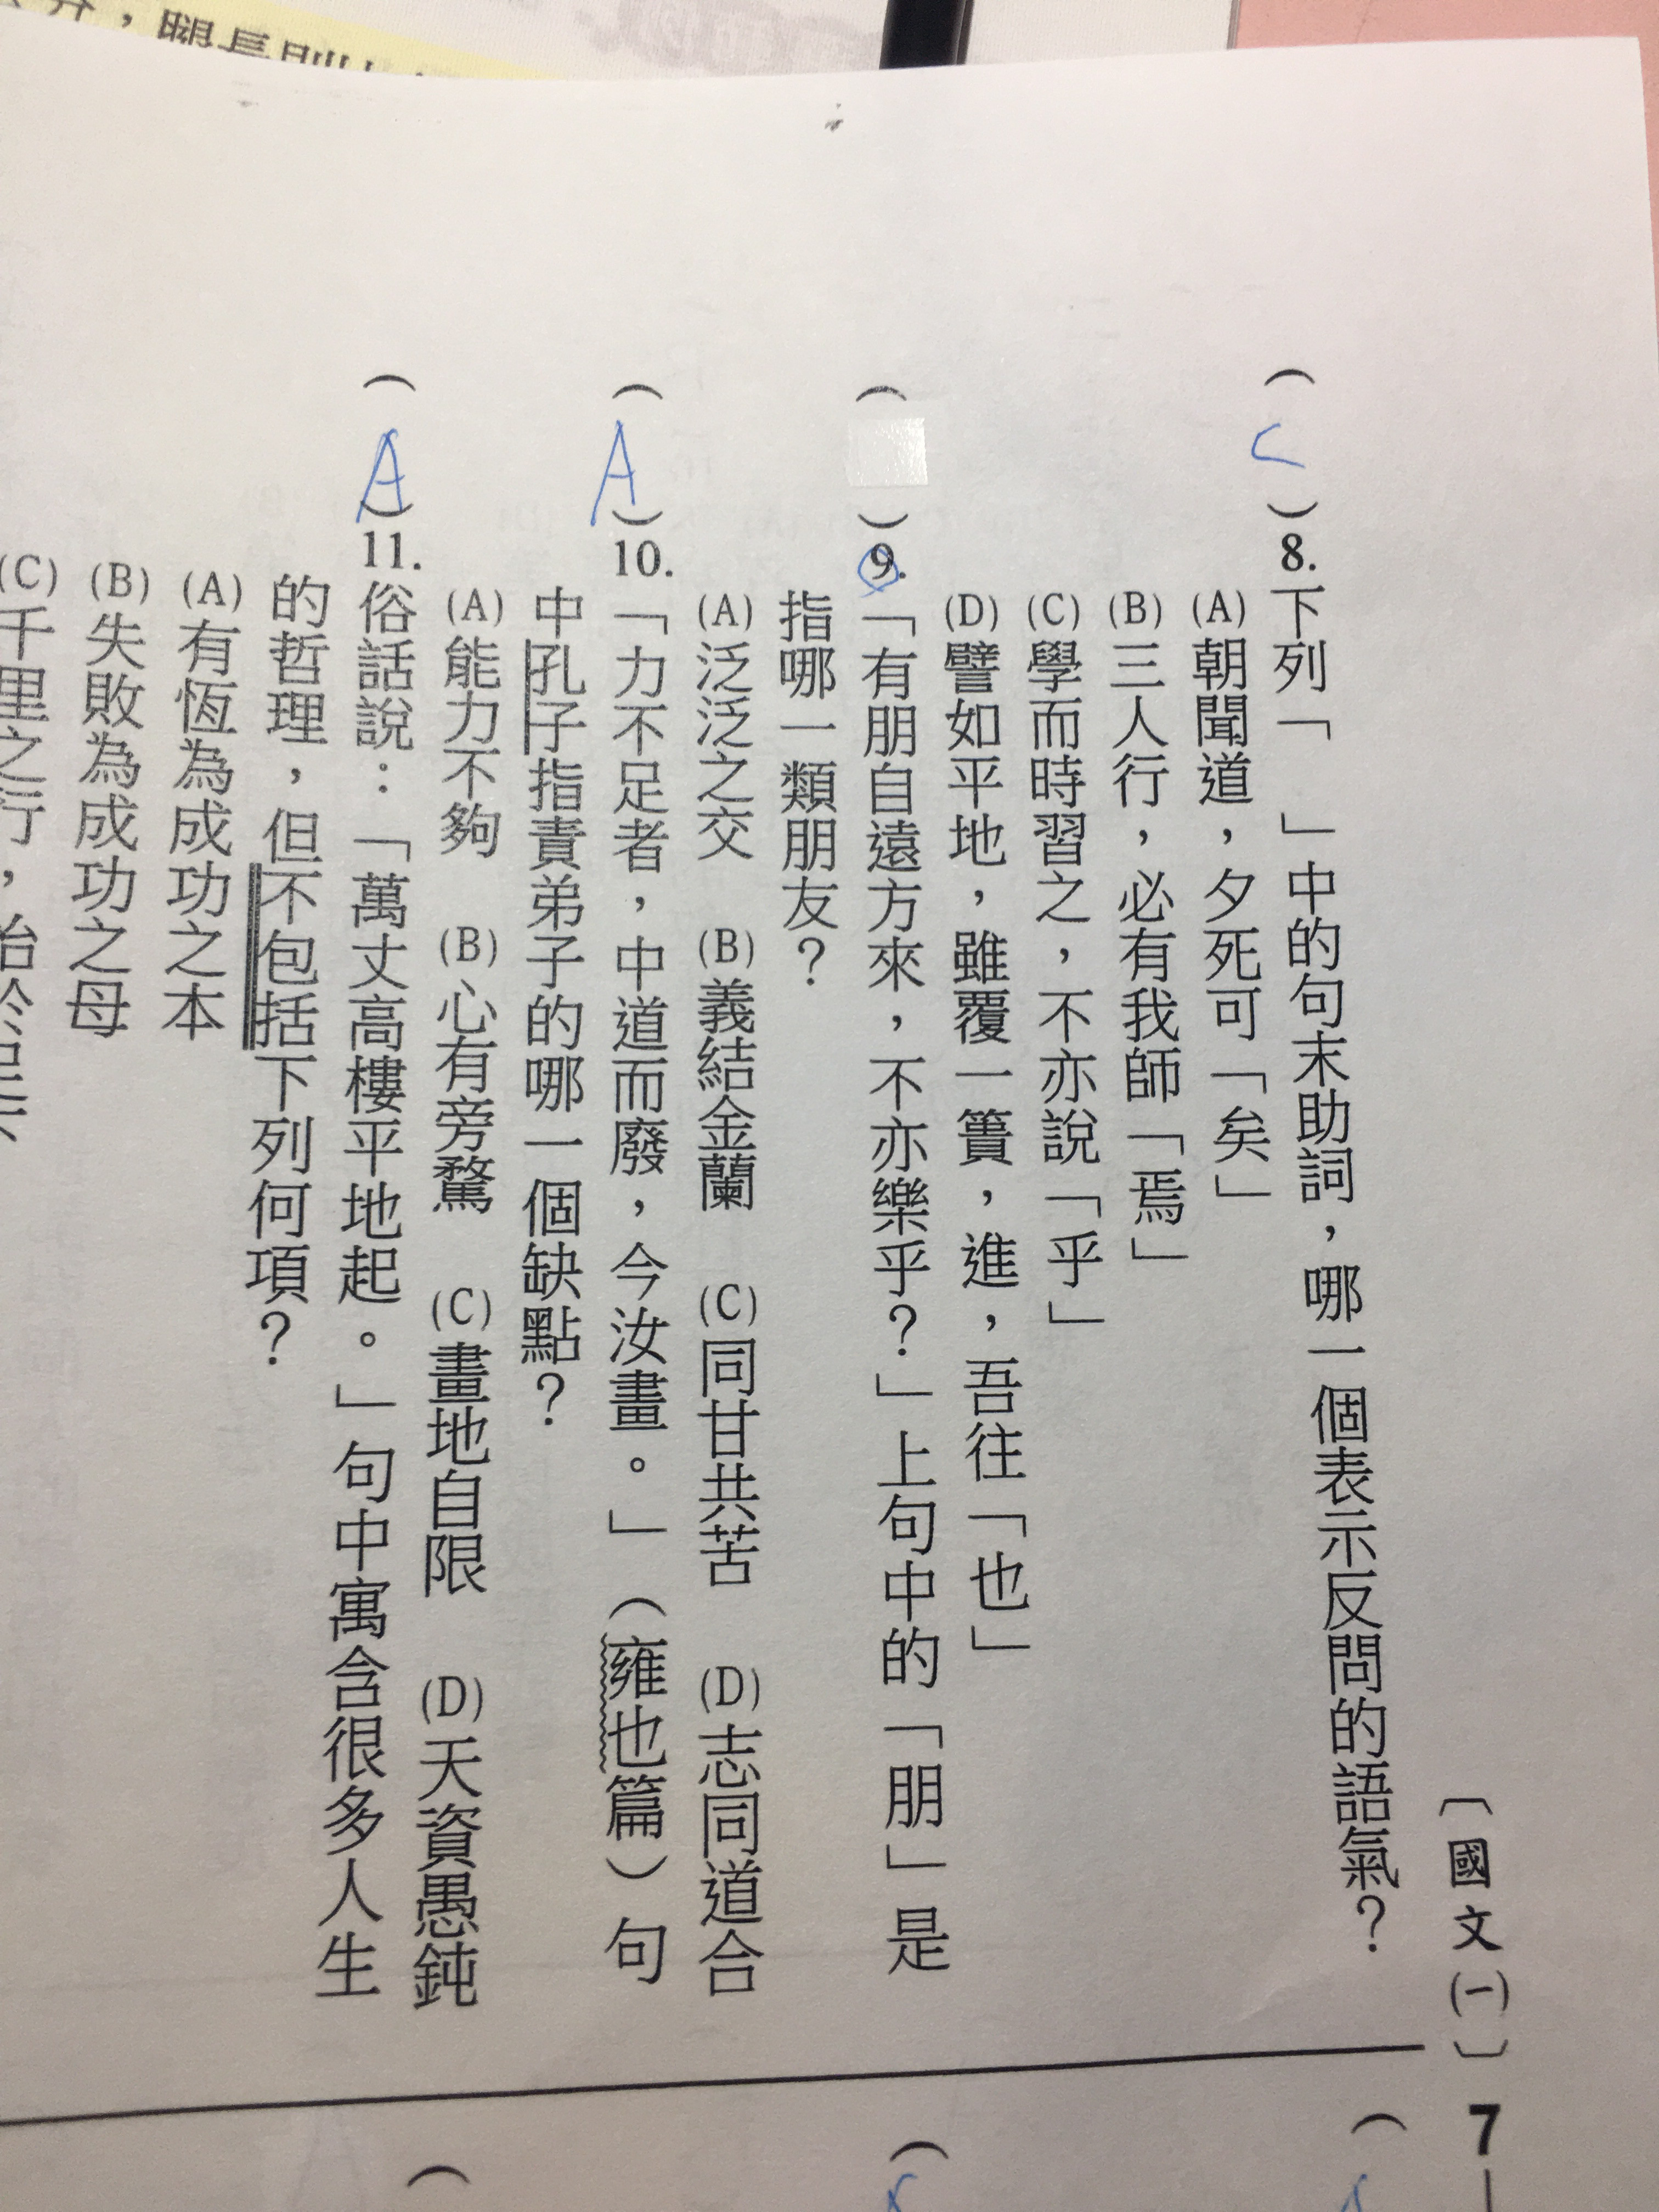 〔國文(一)〕 7
( C )8.下列「 」中的句末助詞，哪一個表示反問的語氣？
(A)朝聞道，夕死可「矣」
(B)三人行，必有我師「焉」
(C)學而時習之，不亦說「乎」
(D)譬如平地，雖覆一簣，進，吾往「也」
( )9.「有朋自遠方來，不亦樂乎？」上句中的「朋」是
指哪一類朋友？
(A)泛泛之交 (B)義結金蘭 (C)同甘共苦 (D)志同道合
( A )10.「力不足者，中道而廢，今汝畫。」（雍也篇）句
中孔子指責弟子的哪一個缺點？
(A)能力不夠 (B)心有旁騖 (C)畫地自限 (D)天資愚鈍
( A )11.俗話說：「萬丈高樓平地起。」句中寓含很多人生
的哲理，但不包括下列何項？
(A)有恆為成功之本
(B)失敗為成功之母
(C)千里之行，始於足下